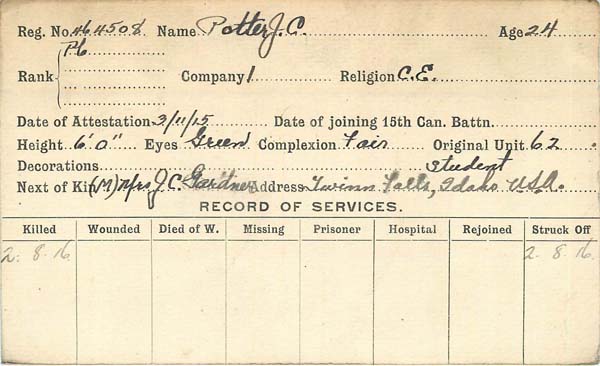 Reg. No. 464508. Name Potter J. C. Age 24
Rank Pte Company 1 Religion C. E.
Date of Attestation 3/11/15 Date of joining 15th Can. Battn.
Height 6' 0" Eyes Green Complexion Fair Original Unit 62
Decorations Student
Next of Kin (M) Mrs J. C. Gardner Address Twinn Falls, Idaho U.S.A.
RECORD OF SERVICES.
Killed Wounded Died of W. Missing Prisoner Hospital Rejoined Struck Off
2. 8. 16. 2. 8. 16.